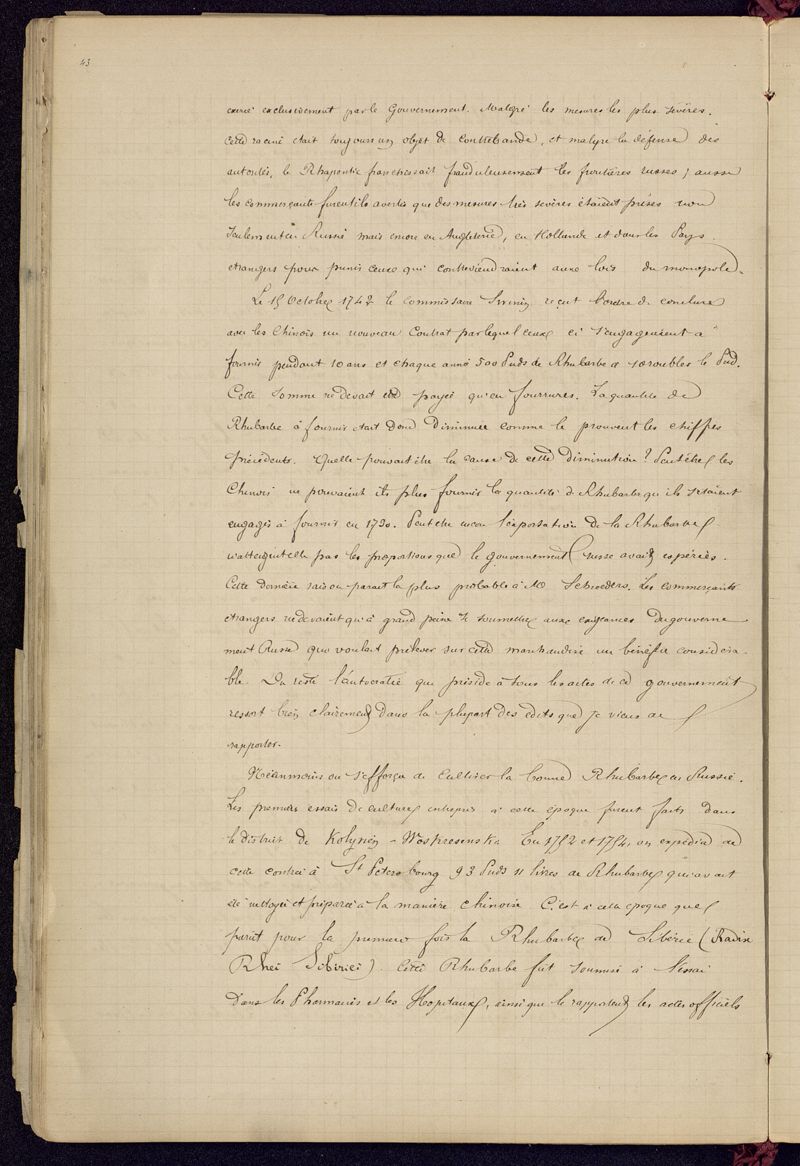 43
exclusivement par le Gouvernement. Malgré les mesures les plus sevères.
Cette racine était toujours un objet de contrebande, et malgré la défense des
autorités, le Rhapontic franchissait frauduleusement les frontières russes ; aussi
les commerçants furent ils avertis que des mesures très sevères étaient prises non
seulement en Russie mais encore en Angleterre, en Hollande et dans les Pays
etrangers pour punir ceux qui contreviendraient aux lois du monopole.
Le 15 Octobre 1742 le commissaire reçut l'ordre de conclure
avec les Chinois un nouveau Contrat par lequel ceux ci s'engageaient à
fournir pendant 10 ans et chaque année 500 Puds de Rhubarbe à roubles le Pud.
Cette somme ne devait être payée qu'en fourrures. La quantité de
Rhubarbe à fournir était donc diminuée comme le prouvent les chiffres
précédents. Quelle pouvait être la cause de cette diminution ? Peut être les
Chinois ne pouvaient ils plus fournir la quantité de Rhubarbe qu'ils s'étaient
engagés à fournir en 1730. Peut être encore l'exportation de la Rhubarbe
n'atteignit elle pas les proportions que le gouvernement russe avait espérées.
Cette dernière raison parait la plus probable à Mr Schroeders. Les commerçants
etrangers ne devaient qu'à grand peine se soumettre aux exigences du gouverne
ment Russe qui voulait prélever sur cette marchandise un bénéfice considéra-
ble. Du reste l'autocratie qui préside à tous les actes de ce gouvernement
ressort bien clairement dans la plupart des édits que je viens de
rapporter.
Néanmoins on s'efforça de cultiver la bonne Rhubarbe en Russie.
Les premiers essais de culture entrepris à cette époque furent faits dans
le district de Kolywan - Woskresensk. En 1752 et 1754, on expédia de
cette contrée à St Petersbourg 93 Puds 11 livres de Rhubarbe qui avait
été nettoyée et préparée à la manière chinoise. C'est à cette époque que
parut pour la première fois la Rhubarbe de Sibérie (Radix
Rhei Sibirici). Cette Rhubarbe fut soumise à l'essai
dans les Pharmacies et les Hopitaux, ainsi que le rapportent les actes officiels